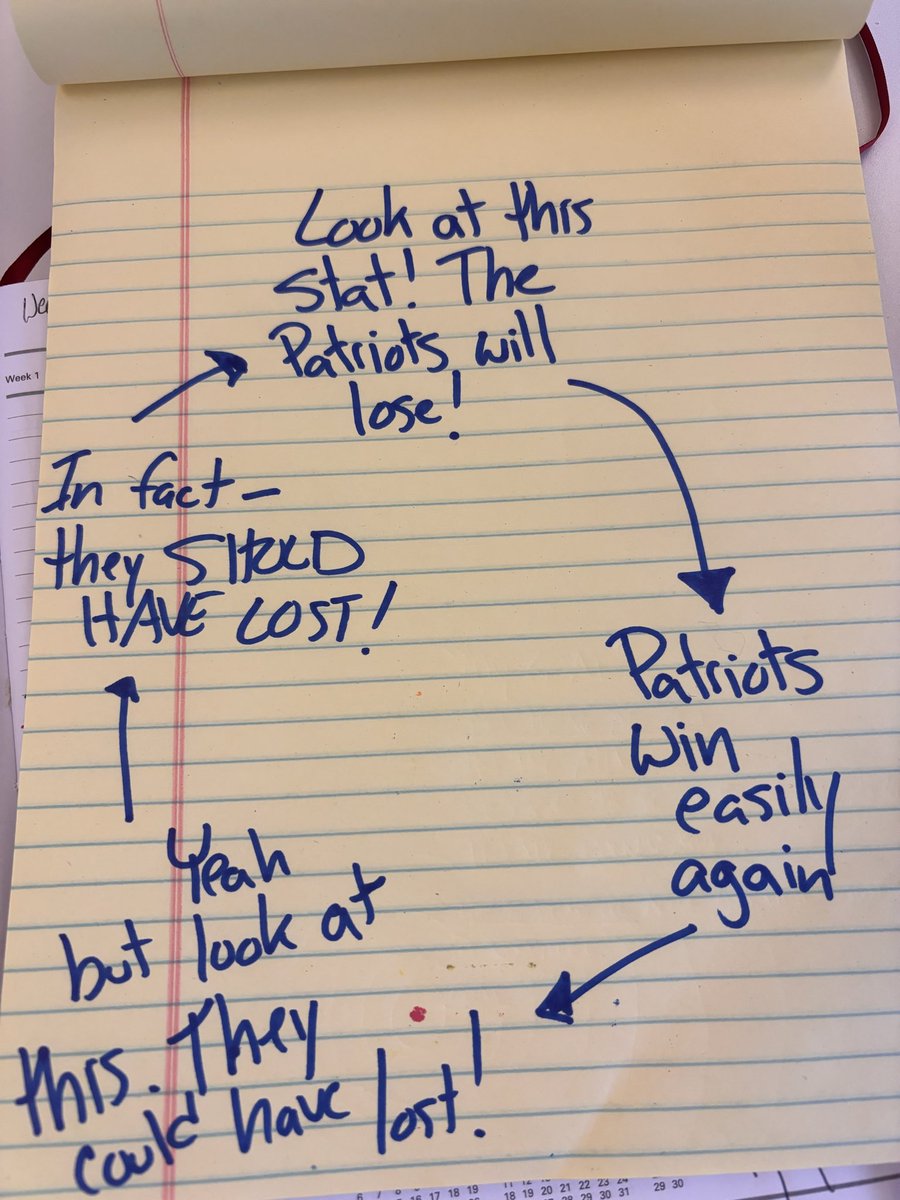 Look at this
Stat! The
Patriots will
lose!
Patriots
win
easily
again
Yeah
but look at
this. They
could have lost!
In fact -
they SHOULD
HAVE LOST!
Week 1
16 17 18 19
18 19 20 21 22 23 24
28 29 30 31
29 30